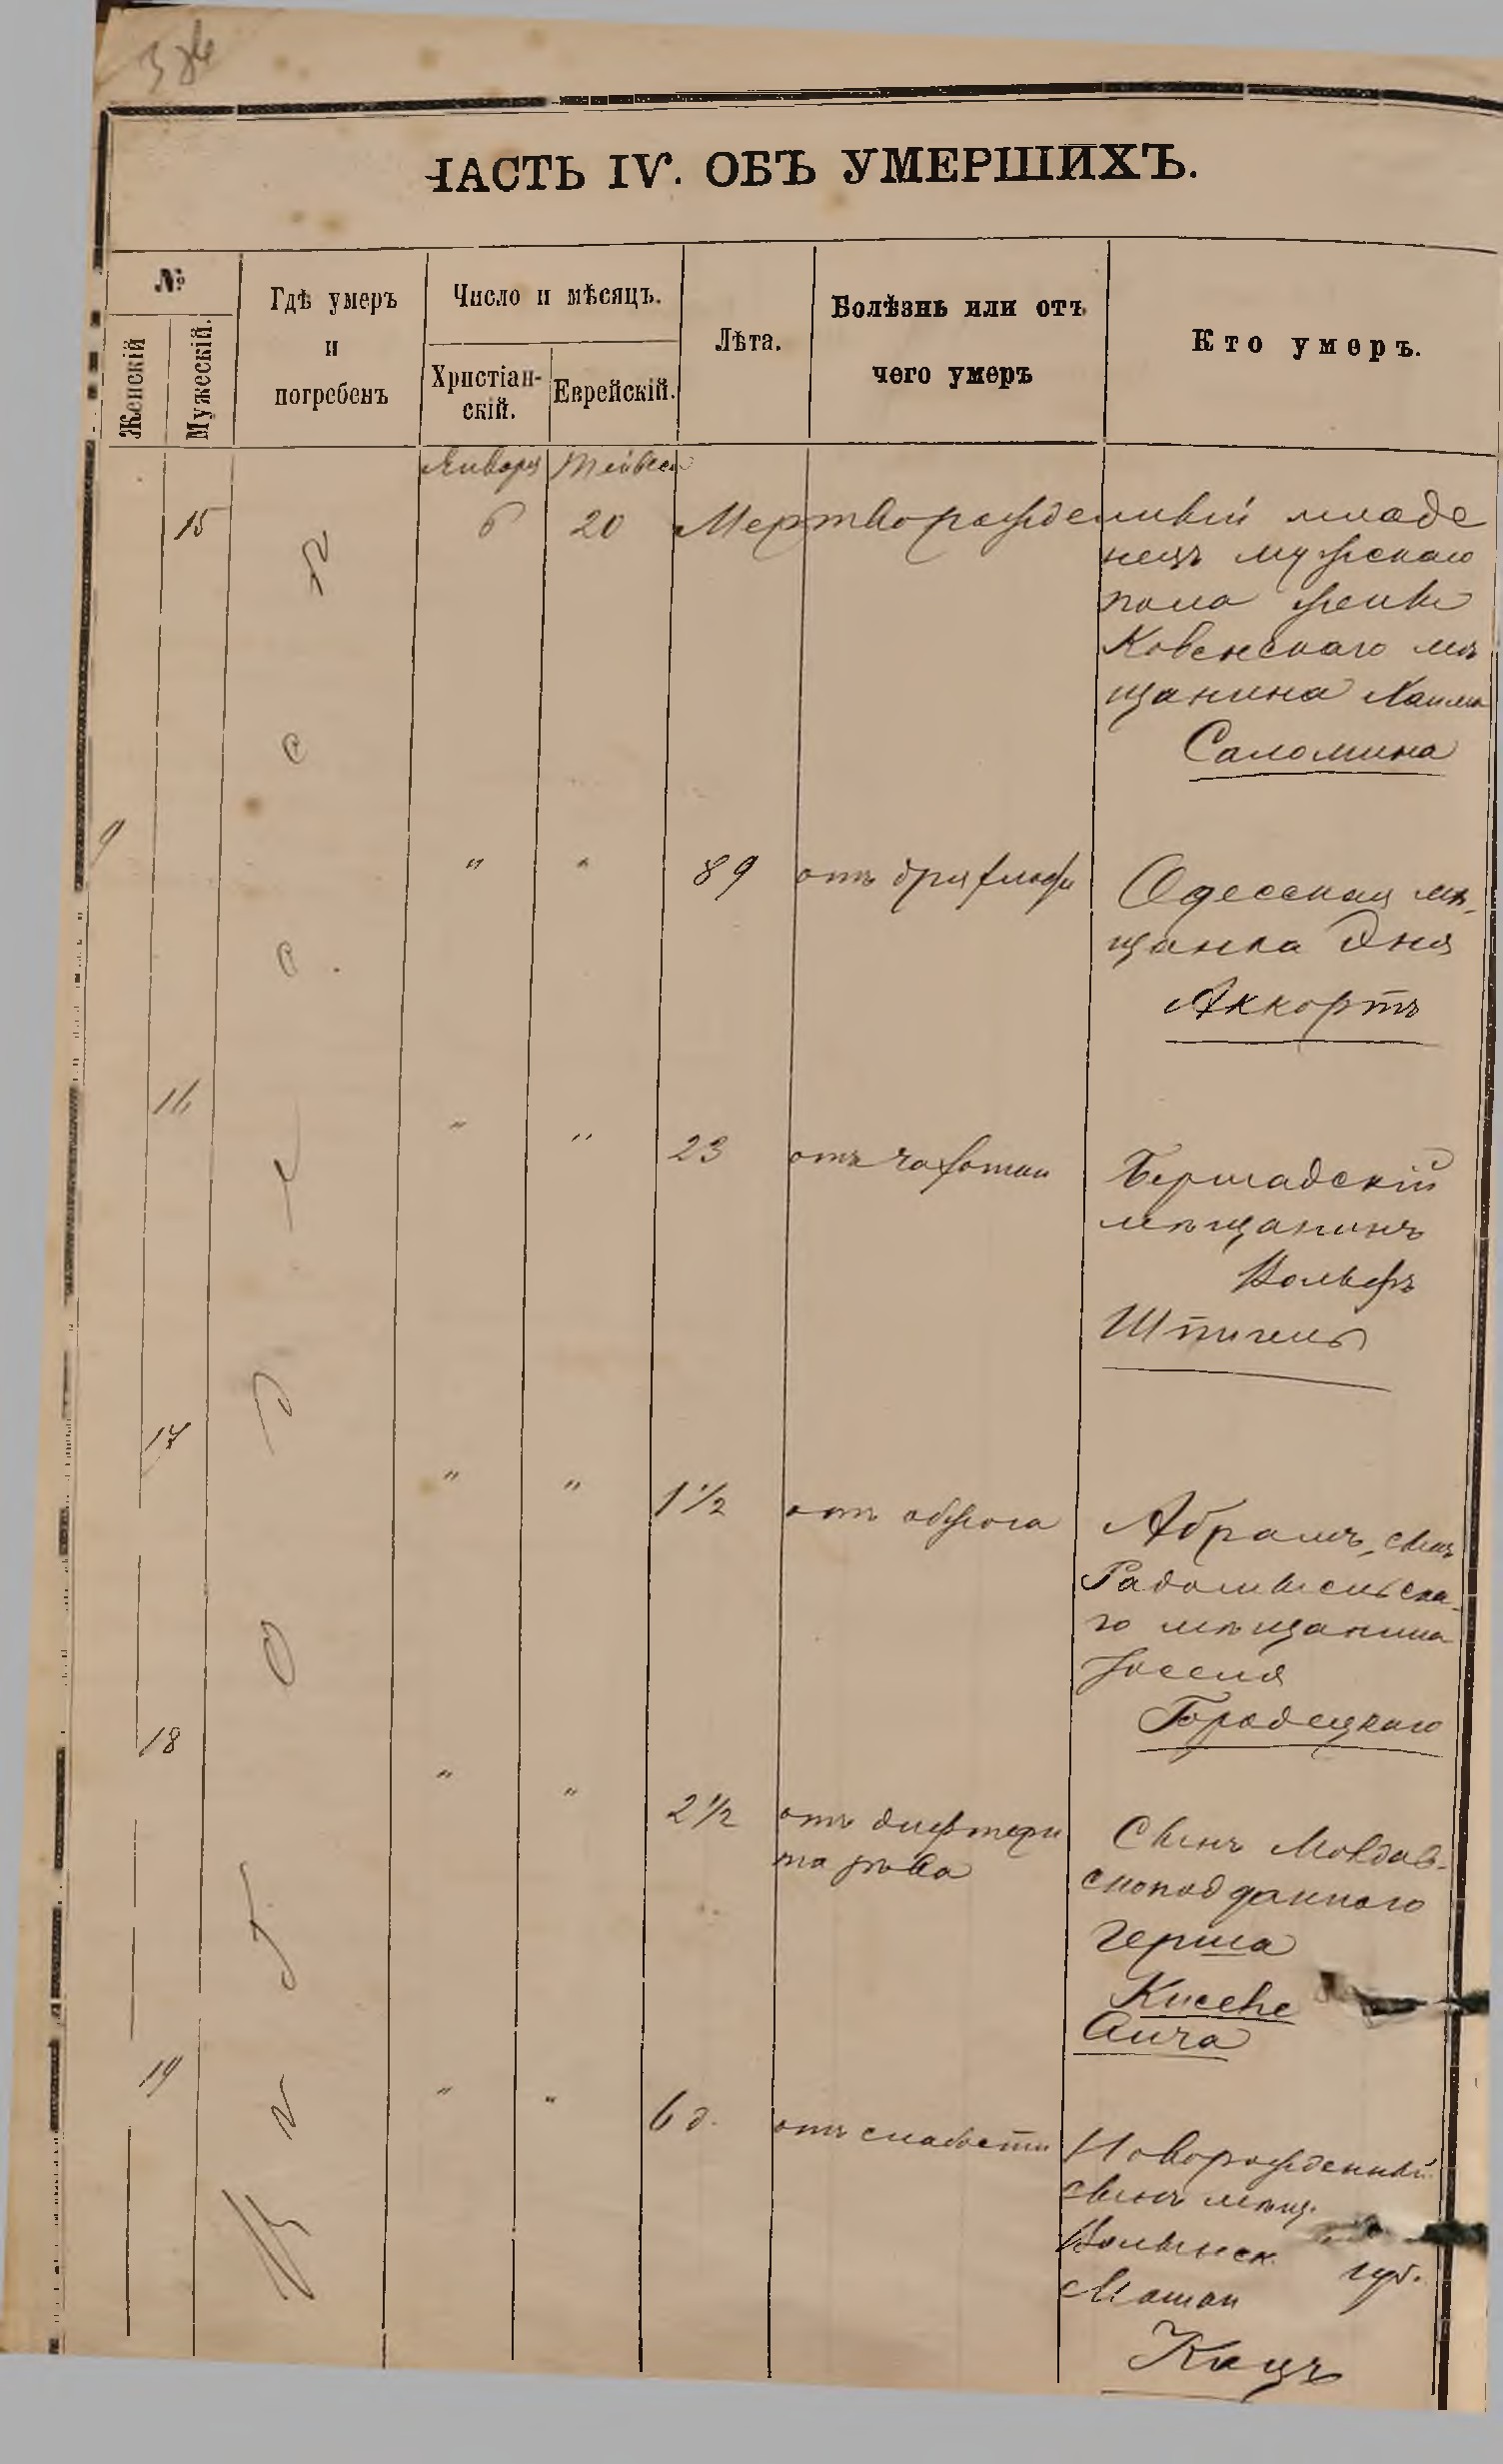 ЧАСТЬ IV. ОБЪ УМЕРШИХЪ.
№
Женскій
Мужескій.
Гдѣ умеръ
и
погребенъ
Число и мѣсяцъ.
Христіан-
скій.
Еврейскій.
Лѣта.
Болѣзнь или отъ
чего умеръ
Кто умеръ.
Января Тейвеса
15 6 20 Мертворожденный младе
нецъ мужскаго
пола жены
Ковенскаго мѣ
щанина Хаима
Саломина
9 " " 89 отъ дряхлости Одесская мѣ-
щанка Эня
Аккортъ
16 " " 23 отъ чахотки Бершадскій
мѣщанинъ
Вольфъ
Шпигель
17 " " 1½ отъ обжога Абрамъ, сынъ
Радомысльска-
го мѣщанина
Іоселя
Городецкаго
18 " " 2½ отъ дифтери Сынъ Молдав-
та зѣва скоподданного
Герша
Кисеве
Аича
19 " " 6 д. отъ слабости Новорожденный
сынъ мѣщ.
Волынск. губ.
Кацъ